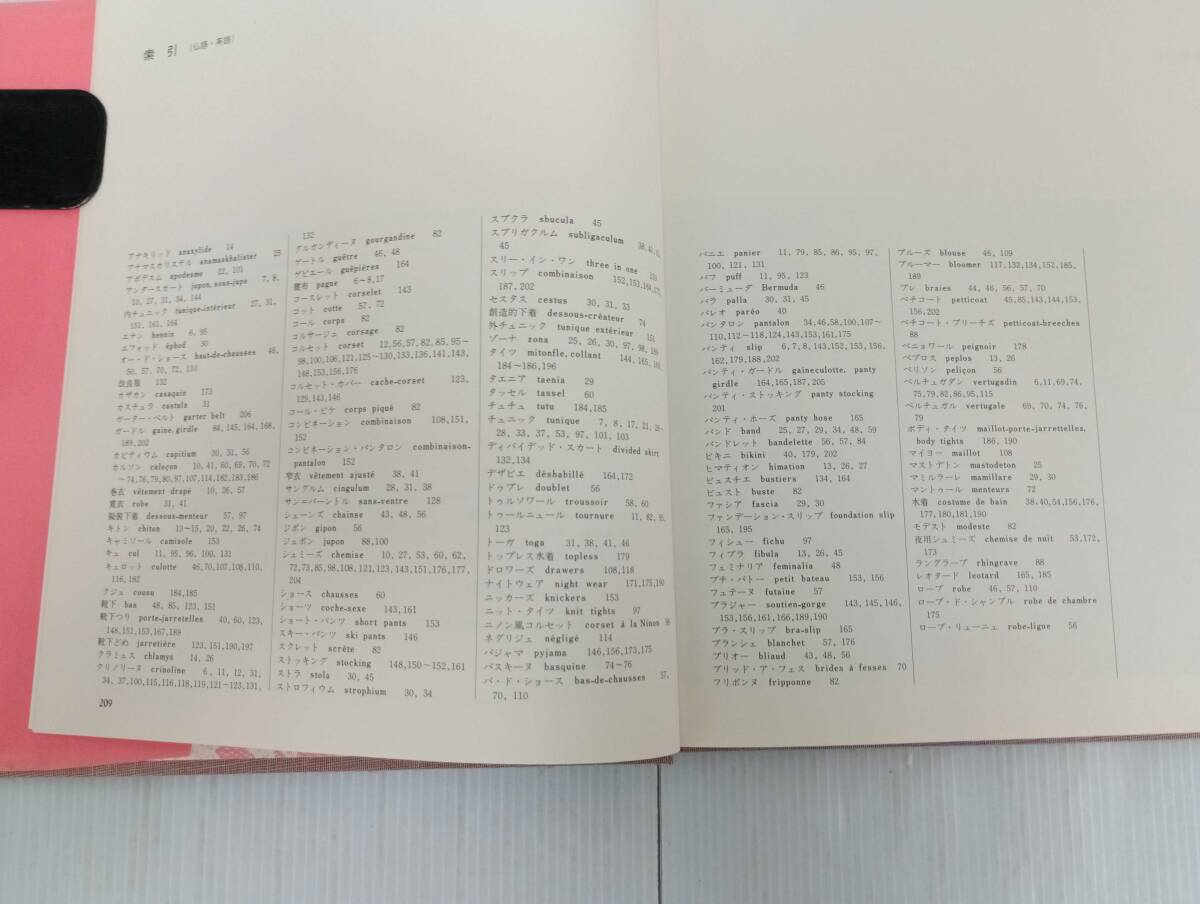 索引 〔仏語・英語〕
アナキリッド anaxylide 14
アナマスカリステル anamaskhalister 25
アポデスム apodesme 22, 101
アンダースカート jupon, sous-jupe 7, 8,
10, 27, 31, 34, 144
内チュニック tunique-intérieur 27, 31,
151, 161, 164
エナン hennin 6, 95
エフォッド éphod 30
オー・ド・ショース haut-de-chausses 46,
50, 57, 70, 72, 110
改良服 132
カザカン casaquin 173
カスチュラ castula 31
ガーター・ベルト garter belt 206
ガードル gaine, girdle 84, 145, 164, 168,
189, 202
カピティウム capitium 30, 31, 56
カルソン caleçon 10, 41, 60, 69, 70, 72
~74, 76, 79, 80, 97, 107, 114, 182, 183, 186
巻衣 vêtement drapé 10, 26, 57
寛衣 robe 31, 41
擬装下着 dessous-menteur 57, 97
キトン chiton 13~15, 20, 22, 26, 74
キャミソール camisole 153
キュ cul 11, 95, 96, 100, 131
キュロット culotte 46, 70, 107, 108, 110,
116, 182
クジュ cousu 184, 185
靴下 bas 48, 85, 123, 151
靴下つり porte-jarretelles 40, 60, 123,
148, 151, 153, 167, 189
靴下どめ jarretière 123, 151, 190, 197
クラミュス chlamys 14, 26
クリノリーヌ crinoline 6, 11, 12, 31,
34, 37, 100, 115, 116, 118, 119, 121~123, 131,
209
132
グルガンディーヌ gourgandine 82
ゲートル guêtre 46, 48
ゲピエール guêpières 164
腰布 pagne 6~8, 17
コースレット corselet 143
コット cotte 57, 72
コール corps 82
コルサージュ corsage 82
コルセット corset 12, 56, 57, 82, 85, 95~
98, 100, 106, 121, 125~130, 133, 136, 141, 143,
148, 153, 156, 176
コルセット・カバー cache-corset 123,
129, 143, 146
コール・ピケ corps piqué 82
コンビネーション combinaison 108, 151,
152
コンビネーション・パンタロン combinaison-
pantalon 152
窄衣 vêtement ajusté 38, 41
サングルム cingulum 28, 31, 38
サン=バーントル sans-ventre 128
シェーンズ chainse 43, 48, 56
ジポン gipon 56
ジュポン jupon 88, 100
シュミーズ chemise 10, 27, 53, 60, 62,
72, 73, 85, 98, 108, 121, 123, 143, 151, 176, 177,
204
ショース chausses 60
ショーツ coche-sexe 143, 161
ショート・パンツ short pants 153
スキー・パンツ ski pants 146
スクレット scrète 82
ストッキング stocking 148, 150~152, 161
ストラ stola 30, 45
ストロフィウム strophium 30, 34
スブクラ sbucula 45
スブリガクルム subligaculum 38, 41,
45
スリー・イン・ワン three in one
スリップ combinaison 152, 153, 164,
187, 202
セスタス cestus 30, 31, 33
創造的下着 dessous-créateur 74
外チュニック tunique extérieur 151
ゾーナ zona 25, 26, 30, 97, 98, 189
タイツ mitonfle, collant 144, 165, 169,
184~186, 196
タエニア taenia 29
タッセル tassel 60
チュチュ tutu 184, 185
チュニック tunique 7, 8, 17, 21, 25~
28, 33, 37, 53, 97, 101, 103
ディバイデッド・スカート divided skirt
132, 134
デザビエ déshabillé 164, 172
ドゥブレ doublet 56
トゥルソワール troussoir 58, 60
トゥールニュール tournure 11, 82, 95,
123
トーガ toga 31, 38, 41, 46
トップレス水着 topless 179
ドロワーズ drawers 108, 118
ナイトウェア night wear 171, 175, 190
ニッカーズ knickers 153
ニット・タイツ knit tights 97
ニノン風コルセット corset à la Ninon
ネグリジュ négligé 114
パジャマ pyjama 146, 156, 173, 175
バスキーヌ basquine 74~76
バ・ド・ショース bas-de-chausses 57,
70, 110
パニエ panier 11, 79, 85, 86, 95, 97,
100, 121, 131
パフ puff 11, 95, 123
バーミューダ Bermuda 46
パラ palla 30, 31, 45
パレオ paréo 40
パンタロン pantalon 34, 46, 58, 100, 107~
110, 112~118, 124, 143, 153, 161, 175
パンティ slip 6, 7, 8, 143, 152, 153, 156,
162, 179, 188, 202
パンティ・ガードル gaineculotte, panty
girdle 164, 165, 187, 205
パンティ・ストッキング panty stocking
201
パンティ・ホーズ panty hose 165
バンド band 25, 27, 29, 34, 48, 59
バンドレット bandelette 56, 57, 84
ビキニ bikini 40, 179, 202
ヒマティオン himation 13, 26, 27
ビュスチエ bustiers 134, 164
ビュスト buste 82
ファシア fascia 29, 30
ファンデーション・スリップ foundation slip
165, 195
フィシュー fichu 97
フィブラ fibula 13, 26, 45
フェミナリア feminalia 48
プチ・バトー petit bateau 153, 156
フュテーヌ futaine 57
ブラジャー soutien-gorge 143, 145, 146,
153, 156, 161, 166, 189, 190
ブラ・スリップ bra-slip 165
ブランシェ blanchet 57, 176
ブリオー bliaud 43, 48, 56
ブリッド・ア・フェス brides à fesses 70
フリポンヌ fripponne 82
ブルーズ blouse 46, 109
ブルーマー bloomer 117, 132, 134, 152, 185,
189
ブレ braies 44, 46, 56, 57, 70
ペチコート petticoat 45, 85, 143, 144, 153,
156, 202
ペチコート・ブリーチズ petticoat-breeches
88
ペニョワール peignoir 178
ペプロス peplos 13, 26
ペリソン peliçon 56
ベルチュガダン vertugadin 6, 11, 69, 74,
75, 79, 82, 86, 95, 115
ベルチュガル vertugale 69, 70, 74, 76,
79
ボディ・タイツ maillot-porte-jarrettelles,
body tights 186, 190
マイヨー maillot 108
マストデトン mastodeton 25
マミルラーレ mamillare 29, 30
マントゥール menteurs 72
水着 costume de bain 38, 40, 54, 156, 176,
177, 180, 181, 190
モデスト modeste 82
夜用シュミーズ chemise de nuit 53, 172,
173
ラングラーブ rhingrave 88
レオタード leotard 165, 185
ローブ robe 46, 57, 110
ローブ・ド・シャンブル robe de chambre
175
ローブ・リューニュ robe-ligne 56